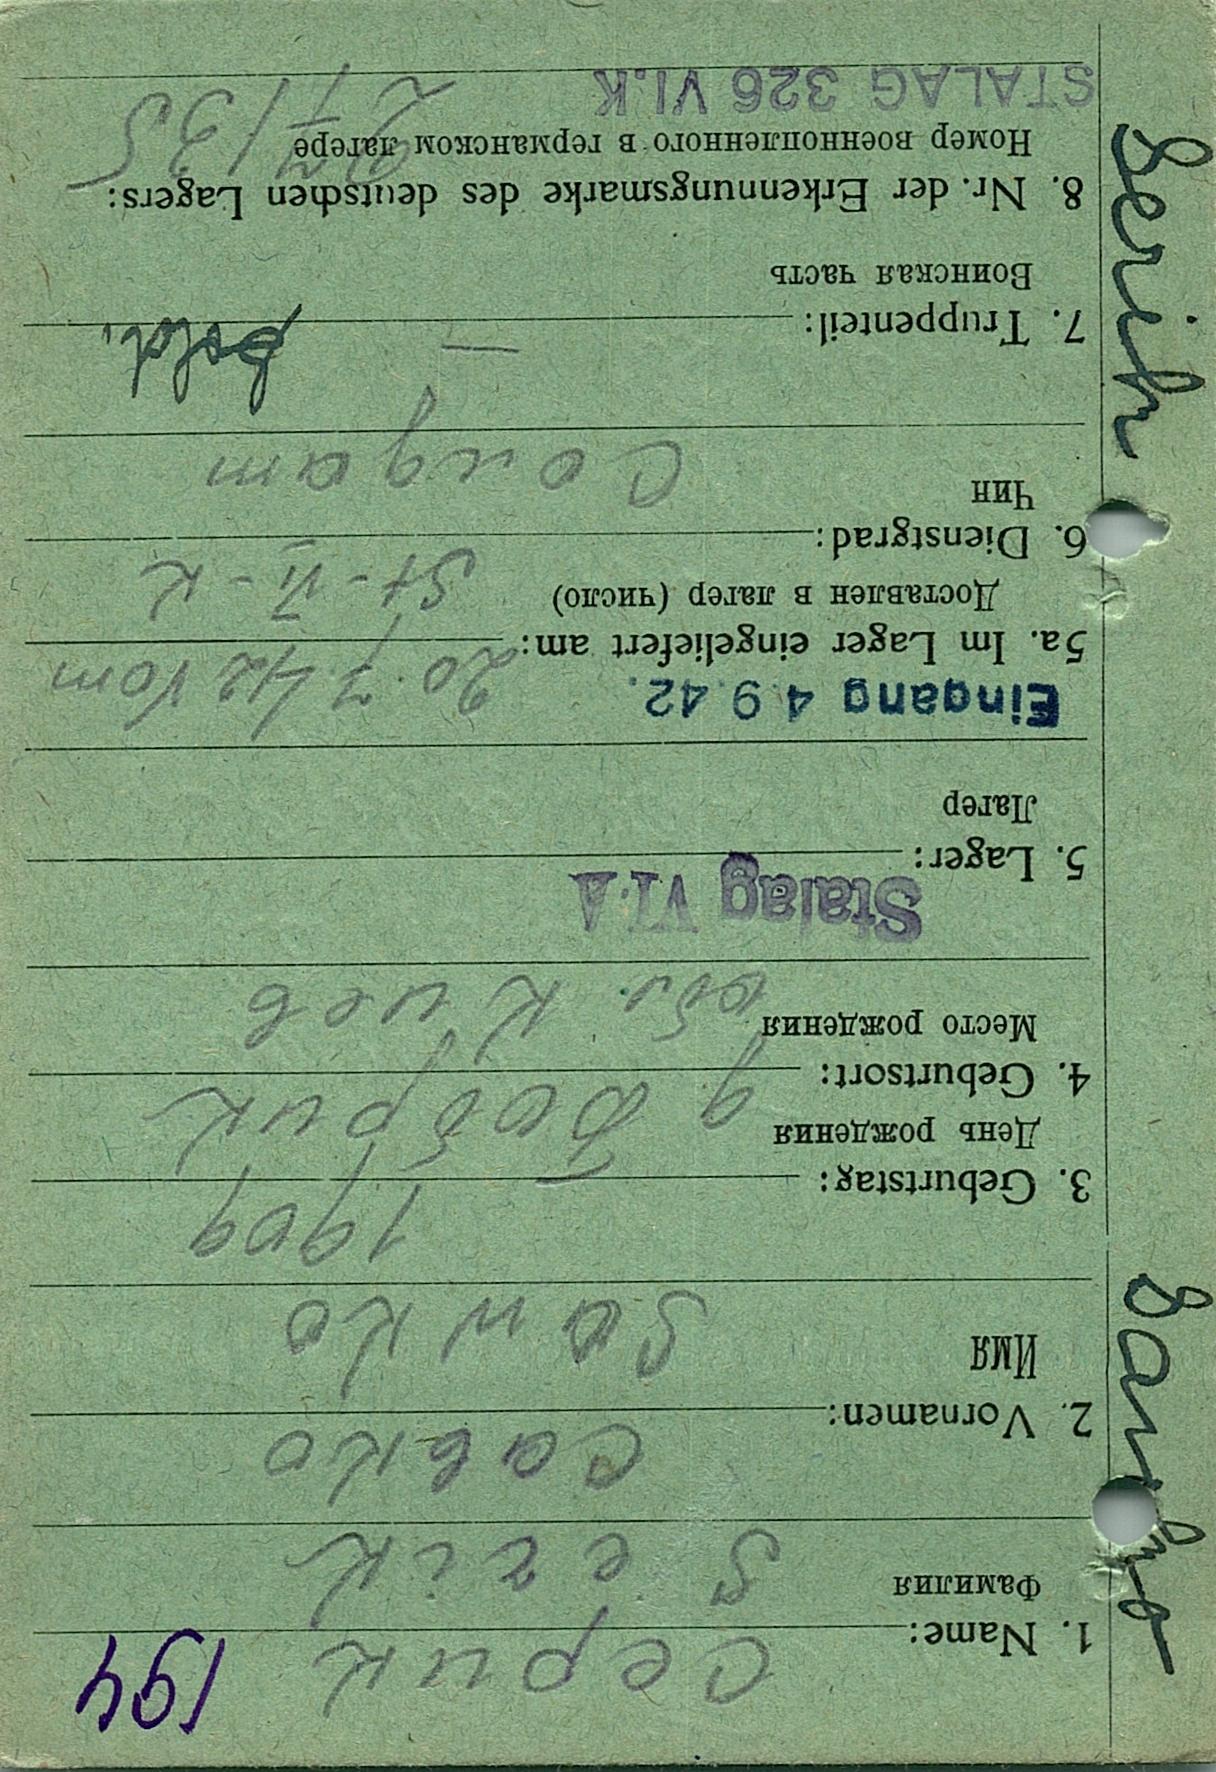 194
1. Name: Серик
Фамилия Serik
2. Vornamen: Савко
Имя Sawko
3. Geburtstag: 1909
День рождения
4. Geburtsort: д Бобрик
Место рождения обл. Киев
Stalag VI A
5. Lager:
Лагер
Eingang 4.9.42.
5a. Im Lager eingeliefert am: 20.7.42 vom
Доставлен в лагер (число) St-VI-K
6. Dienstgrad:
Чин Солдат
7. Truppenteil: — Sold.
Воинская часть
8. Nr. der Erkennungsmarke des deutschen Lagers:
Номер военнопленного в германском лагере
STALAG 326 VI.K
Serik Sawko